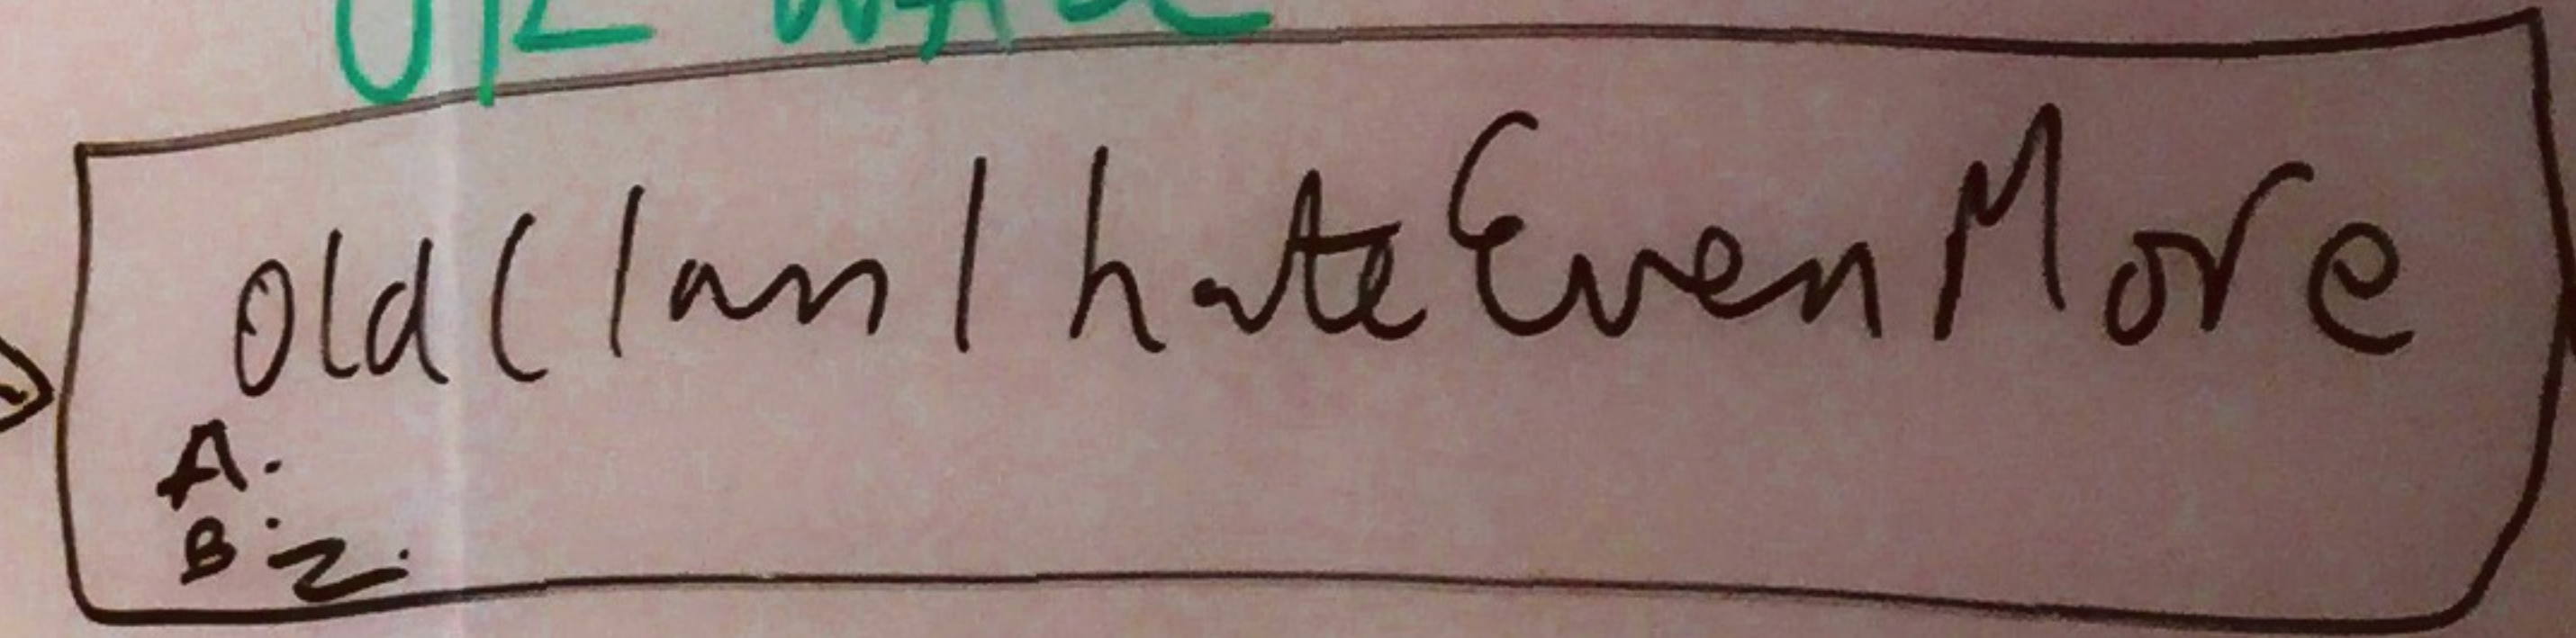 oldClanIhateEvenMore
A:
B:
Z: